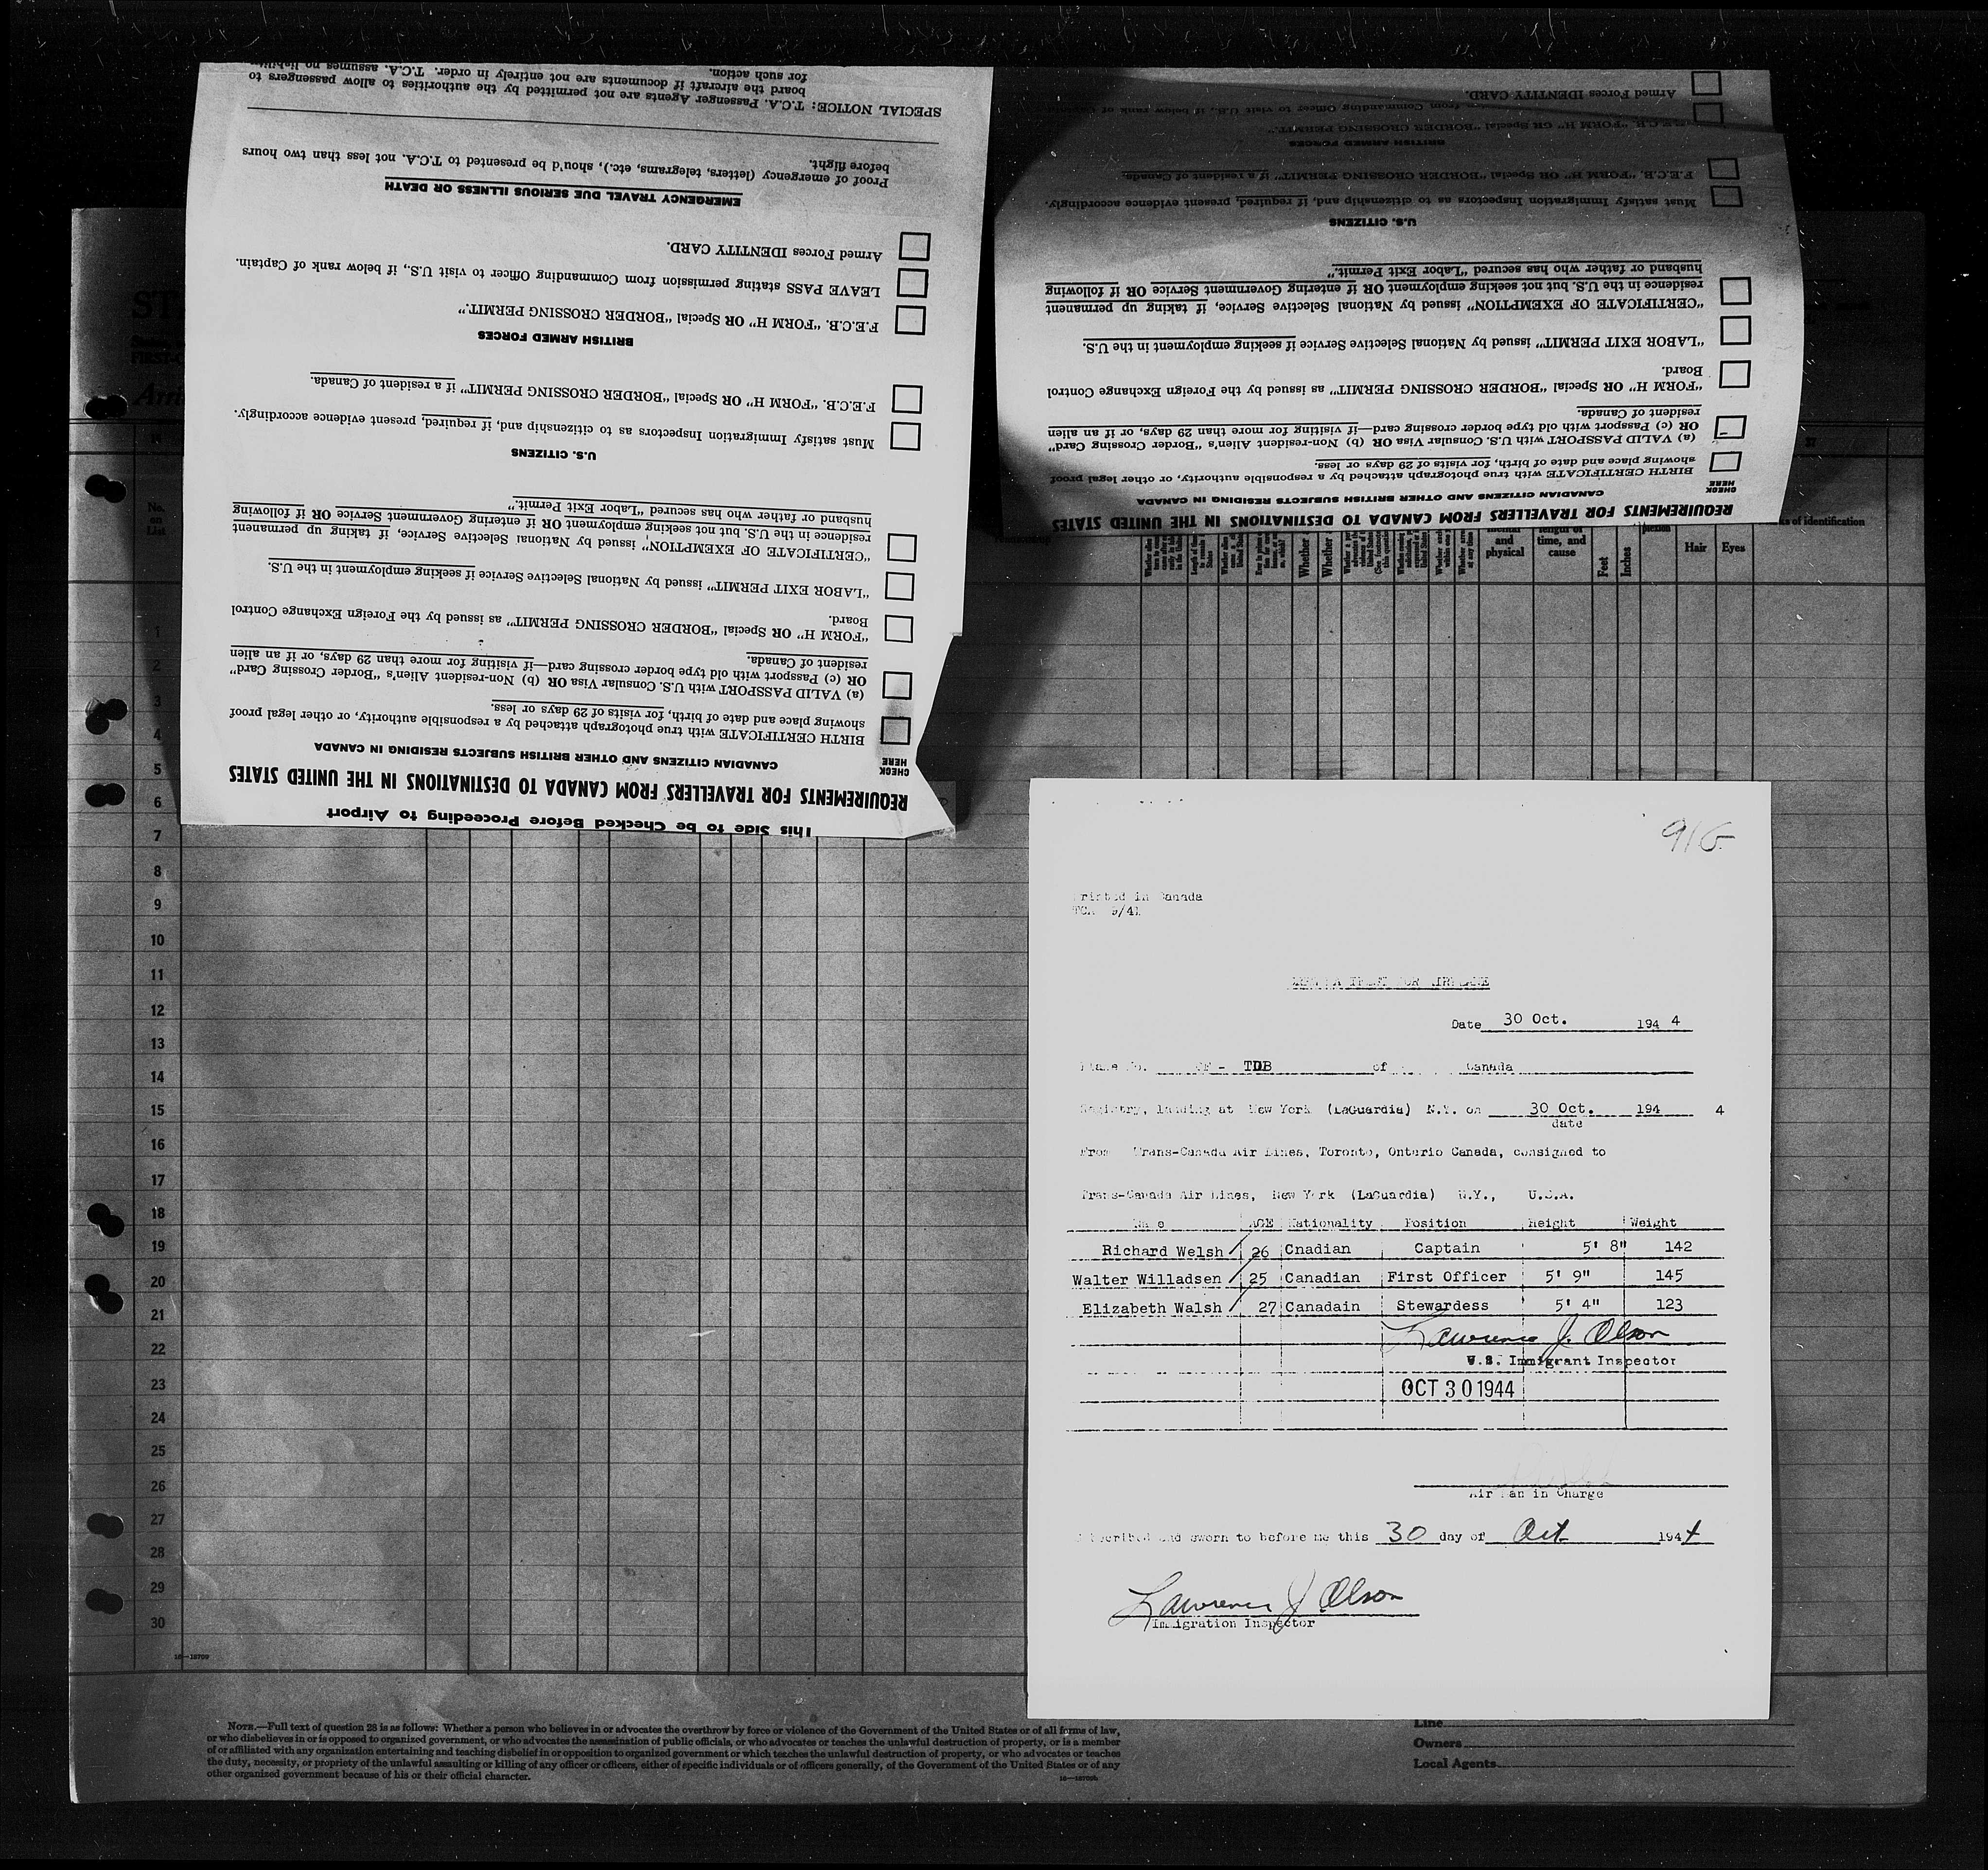 This Side to be Checked Before Proceeding to Airport
REQUIREMENTS FOR TRAVELLERS FROM CANADA TO DESTINATIONS IN THE UNITED STATES
CHECK
HERE
CANADIAN CITIZENS AND OTHER BRITISH SUBJECTS RESIDING IN CANADA
BIRTH CERTIFICATE with true photograph attached by a responsible authority, or other legal proof
showing place and date of birth, for visits of 29 days or less.
(a) VALID PASSPORT with U.S. Consular Visa OR (b) Non-resident Alien's "Border Crossing Card"
OR (c) Passport with old type border crossing card—if visiting for more than 29 days, or if an alien
resident of Canada.
"FORM H" OR Special "BORDER CROSSING PERMIT" as issued by the Foreign Exchange Control
Board.
"LABOR EXIT PERMIT" issued by National Selective Service if seeking employment in the U.S.
"CERTIFICATE OF EXEMPTION" issued by National Selective Service, if taking up permanent
residence in the U.S. but not seeking employment OR if entering Government Service OR if following
husband or father who has secured "Labor Exit Permit."
U.S. CITIZENS
Must satisfy Immigration Inspectors as to citizenship and, if required, present evidence accordingly.
F.E.C.B. "FORM H" OR Special "BORDER CROSSING PERMIT" if a resident of Canada.
BRITISH ARMED FORCES
F.E.C.B. "FORM H" OR Special "BORDER CROSSING PERMIT."
LEAVE PASS stating permission from Commanding Officer to visit U.S., if below rank of Captain.
Armed Forces IDENTITY CARD.
EMERGENCY TRAVEL DUE SERIOUS ILLNESS OR DEATH
Proof of emergency (letters, telegrams, etc.), should be presented to T.C.A. not less than two hours
before flight.
SPECIAL NOTICE: T.C.A. Passenger Agents are not permitted by the authorities to allow passengers to
board the aircraft if documents are not entirely in order. T.C.A. assumes no
for such action.
REQUIREMENTS FOR TRAVELLERS FROM CANADA TO DESTINATIONS IN THE UNITED STATES
CHECK
HERE
CANADIAN CITIZENS AND OTHER BRITISH SUBJECTS RESIDING IN CANADA
BIRTH CERTIFICATE with true photograph attached by a responsible authority, or other legal proof
showing place and date of birth, for visits of 29 days or less.
(a) VALID PASSPORT with U.S. Consular Visa OR (b) Non-resident Alien's "Border Crossing Card"
OR (c) Passport with old type border crossing card—if visiting for more than 29 days, or if an alien
resident of Canada.
"FORM H" OR Special "BORDER CROSSING PERMIT" as issued by the Foreign Exchange Control
Board.
"LABOR EXIT PERMIT" issued by National Selective Service if seeking employment in the U.S.
"CERTIFICATE OF EXEMPTION" issued by National Selective Service, if taking up permanent
residence in the U.S. but not seeking employment OR if entering Government Service OR if following
husband or father who has secured "Labor Exit Permit."
U.S. CITIZENS
Must satisfy Immigration Inspectors as to citizenship and, if required, present evidence accordingly.
F.E.C.B. "FORM H" OR Special "BORDER CROSSING PERMIT" if a resident of Canada.
BRITISH ARMED FORCES
F.E.C.B. "FORM H" OR Special "BORDER CROSSING PERMIT."
from Commanding Officer to visit U.S., if below rank of
Armed Forces IDENTITY CARD.
of identification
and physical
time, and cause
Feet
Inches
Hair
Eyes
No. on List
1
2
3
4
5
6
7
8
9
10
11
12
13
14
15
16
17
18
19
20
21
22
23
24
25
26
27
28
29
30
16—18709
916
Printed in Canada
TCA 9/41
Date 30 Oct. 194 4
Plane No. CF - TDB of Canada
Registry, landing at New York (LaGuardia) N.Y. on 30 Oct. 194 4
date
From Trans-Canada Air Lines, Toronto, Ontario Canada, consigned to
Trans-Canada Air Lines, New York (LaGuardia) N.Y., U.S.A.
Name AGE Nationality Position Height Weight
Richard Welsh 26 Cnadian Captain 5' 8" 142
Walter Willadsen 25 Canadian First Officer 5' 9" 145
Elizabeth Walsh 27 Canadain Stewardess 5' 4" 123
Lawrence J. Olson
U.S. Immigrant Inspector
OCT 30 1944
Air Man in Charge
Subscribed and sworn to before me this 30 day of Oct 1944
Lawrence J Olson
Immigration Inspector
NOTE.—Full text of question 28 is as follows: Whether a person who believes in or advocates the overthrow by force or violence of the Government of the United States or of all forms of law,
or who disbelieves in or is opposed to organized government, or who advocates the assassination of public officials, or who advocates or teaches the unlawful destruction of property, or is a member
of or affiliated with any organization entertaining and teaching disbelief in or opposition to organized government or which teaches the unlawful destruction of property, or who advocates or teaches
the duty, necessity, or propriety of the unlawful assaulting or killing of any officer or officers, either of specific individuals or of officers generally, of the Government of the United States or of any
other organized government because of his or their official character.
Line
Owners
Local Agents